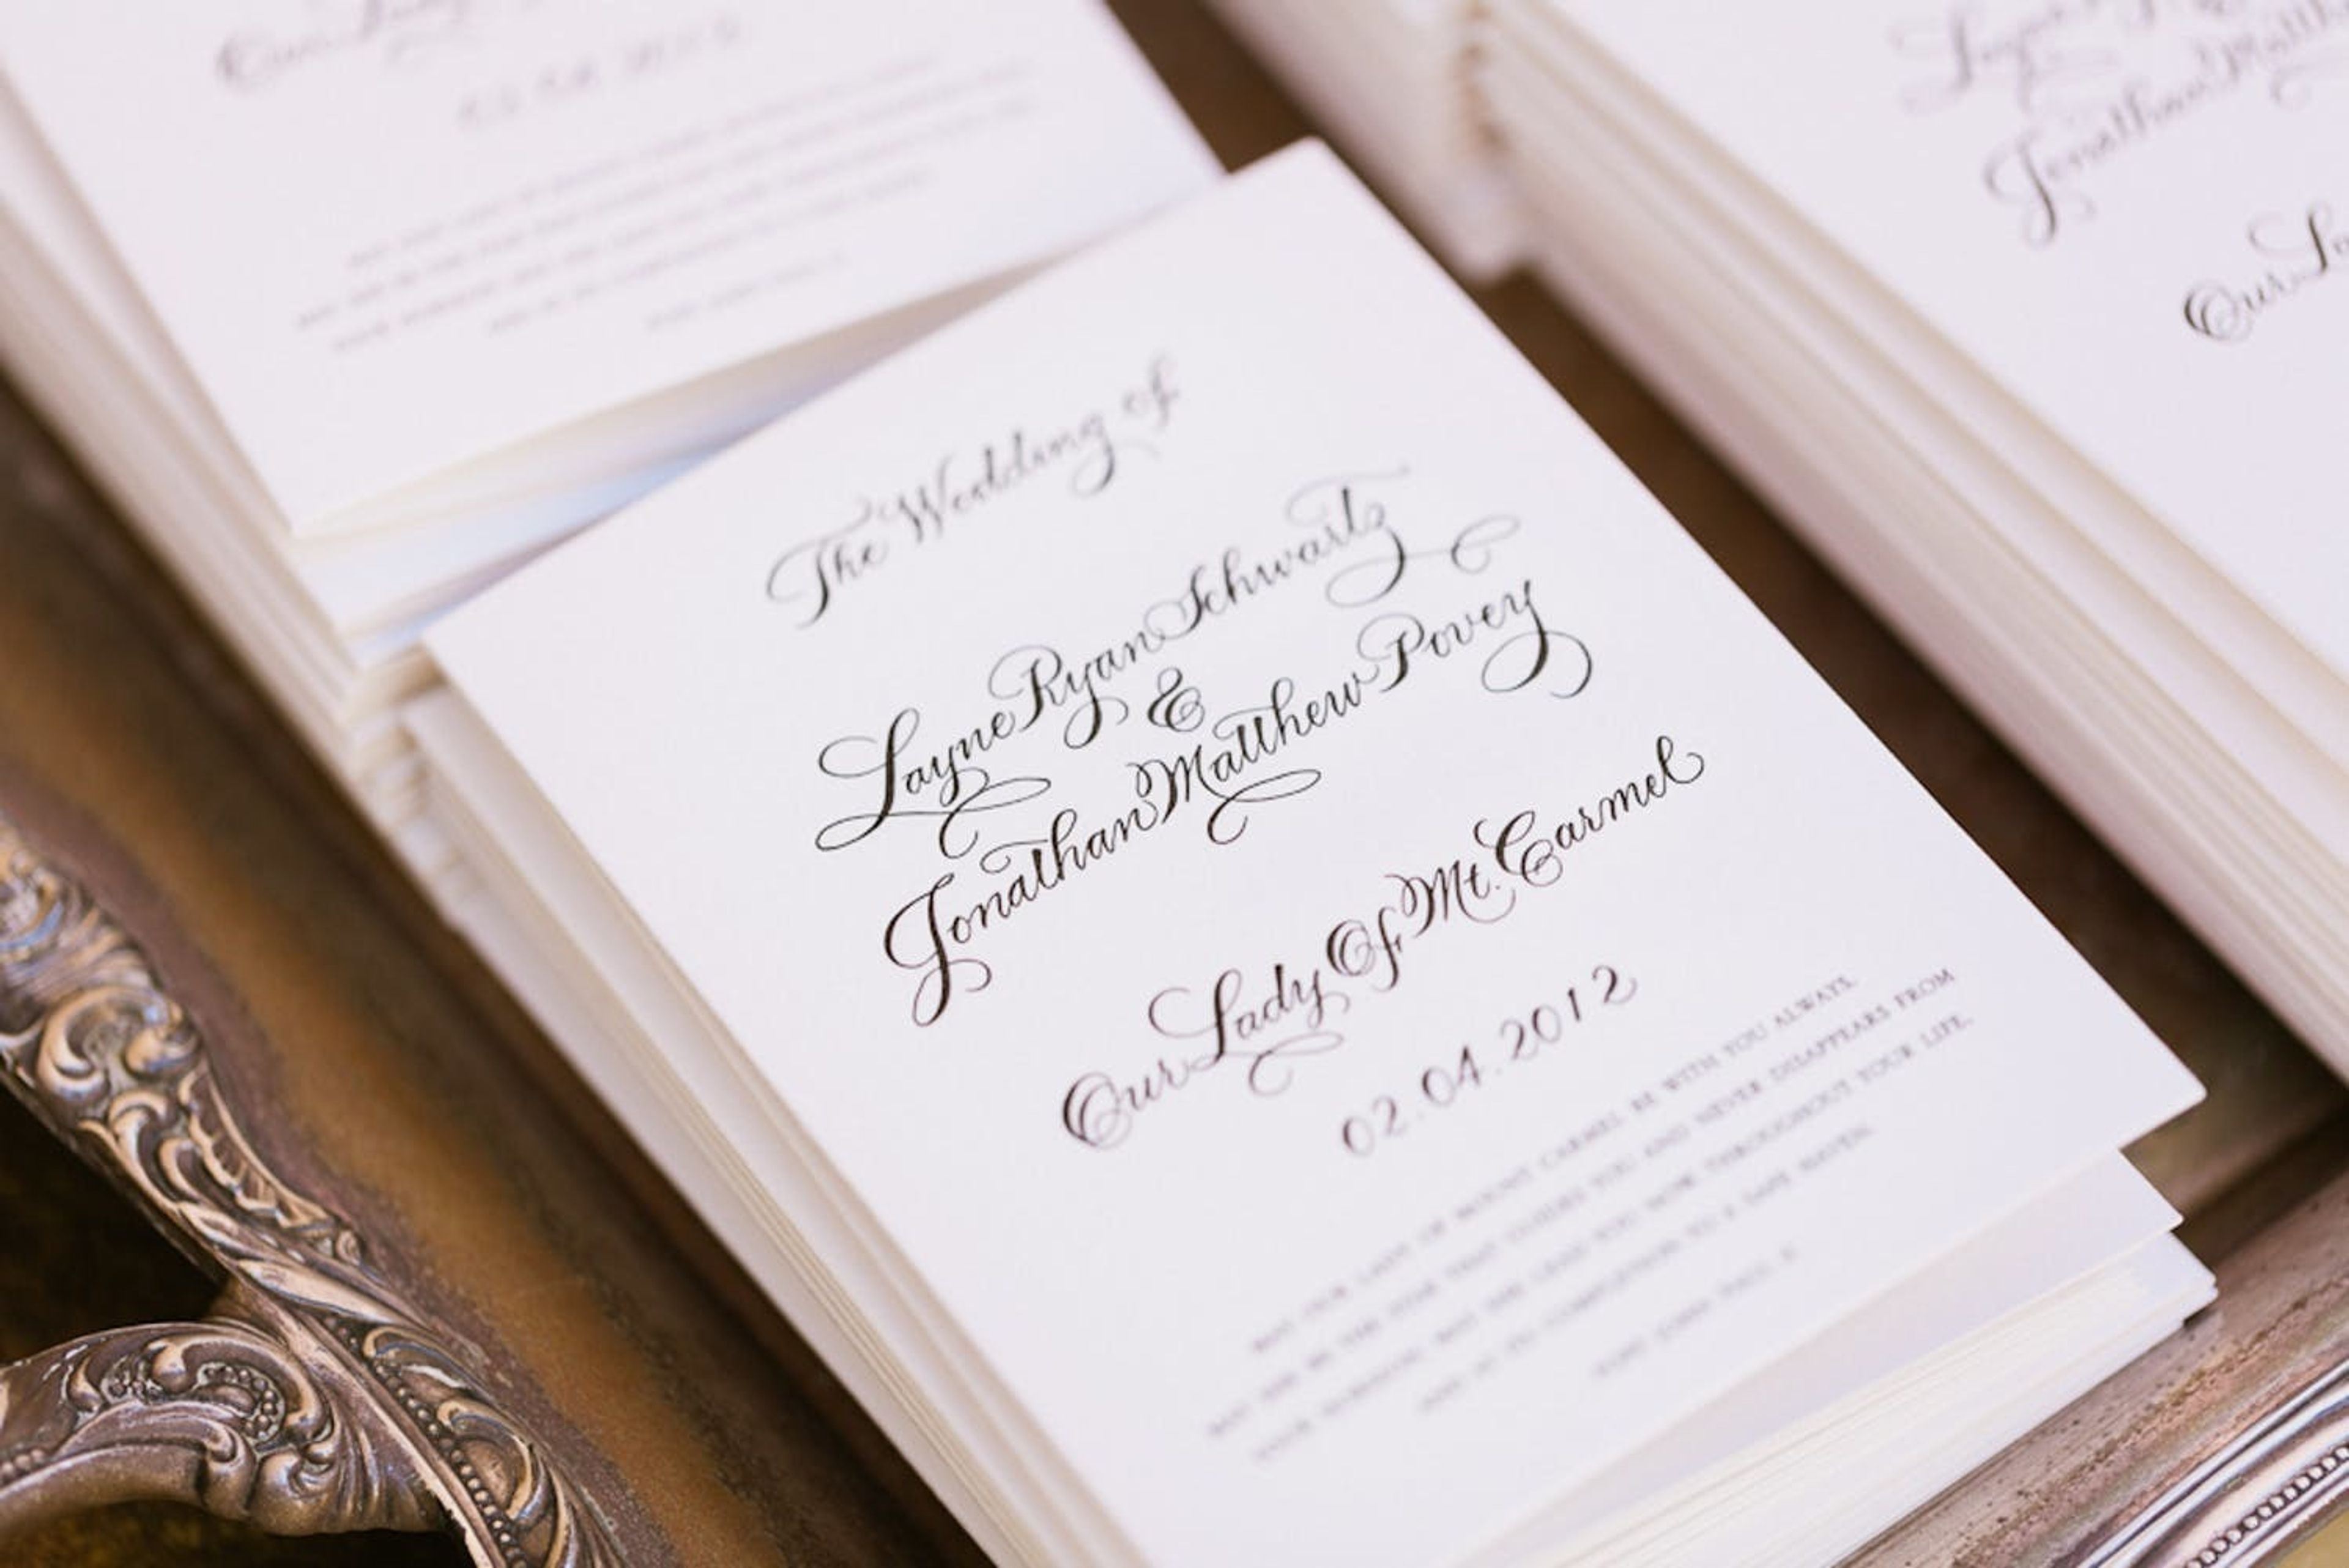 The Wedding of
Layne Ryan Schwartz
&
Jonathan Matthew Povey
Our Lady Of Mt. Carmel
02.04.2012
MAY OUR LADY OF MOUNT CARMEL BE WITH YOU ALWAYS.
MAY SHE BE THE STAR THAT GUIDES YOU AND NEVER DISAPPEARS FROM
YOUR HORIZON. MAY SHE LEAD YOU NOW THROUGHOUT YOUR LIFE,
AND AT ITS COMPLETION TO A SAFE HAVEN.
POPE JOHN PAUL II
Our
Jonathan Matth
Our La